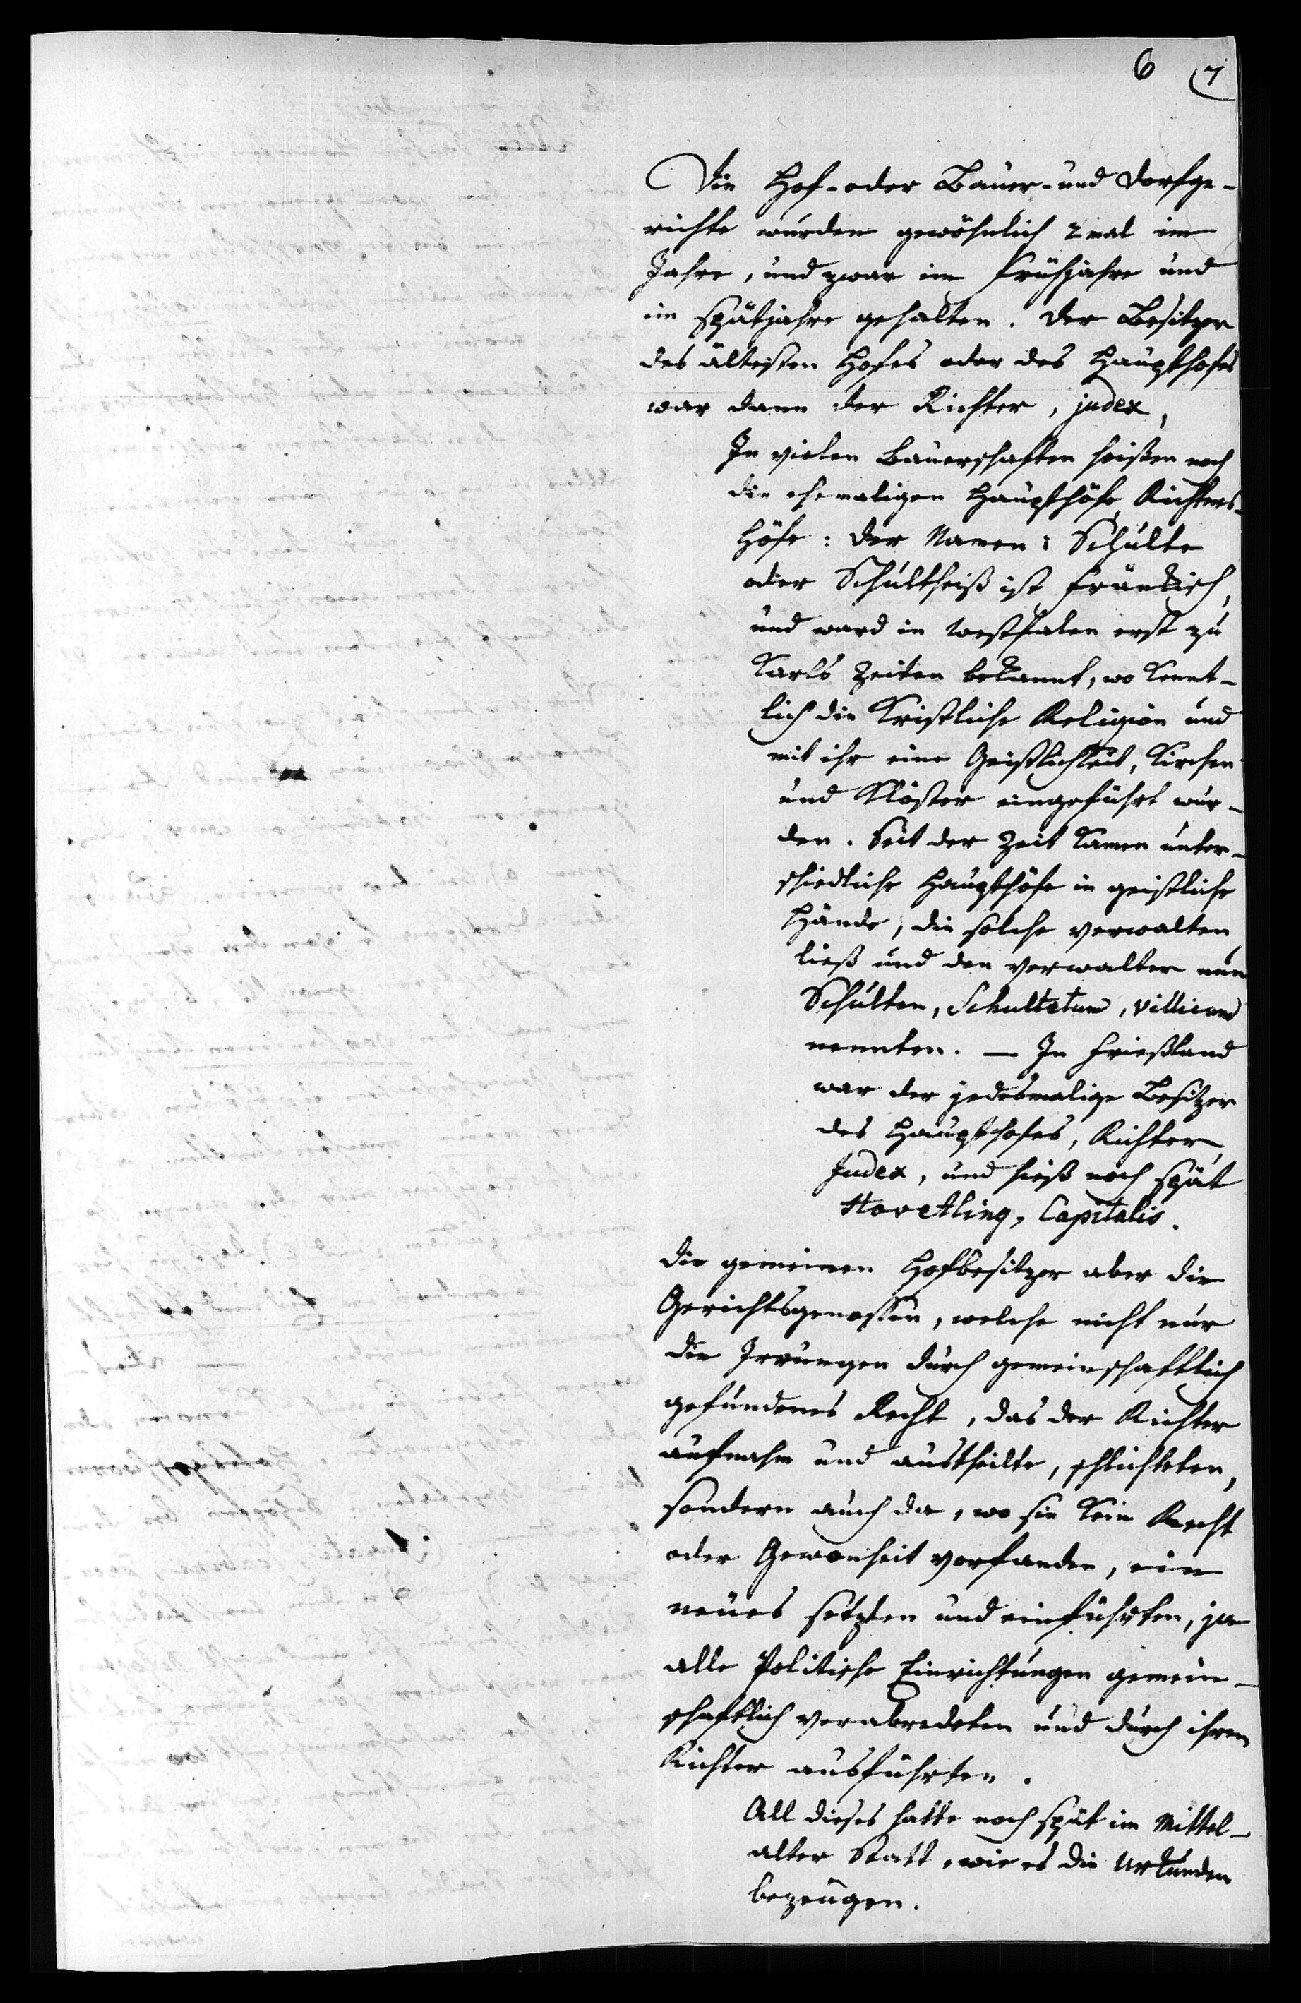 6 7
Die Hof- oder Bauer- und Dorfge-
richte wurden gewöhnlich 2 mal im
Jahre, und zwar im Frühjahre und
im Spätjahre gehalten. Der Besitzer
des ältesten Hofes oder des Haupthofes
war dann der Richter, judex,
In vielen Bauerschaften heißen noch
die ehemaligen Haupthöfe, Richters-
Höfe: der Namen: Schulte
oder Schultheiß ist Fränkisch,
und ward in Westfalen erst zu
Karls Zeiten bekannt, wo Kennt-
lich die Kristliche Religion und
mit ihr eine Geistlichkeit, Kirchen
und Klöster eingeführt wur-
den. Seit der Zeit kamen unter-
schiedliche Haupthöfe in geistliche
Hände, die solche verwalten
ließ und den Verwalter nun
Schulten, Schultetum, villicum
nennten. — In Frießland
war der jedesmalige Besitzer
des Haupthofes, Richter,
Judex, und hieß noch spät
Hovetling, Capitalis.
Die gemeinen Hofbesitzer aber die
Gerichtsgenossen, welche nicht nur
die Irrungen durch gemeinschaftlich
gefundenes Recht, das der Richter
aufnahm und austheilte, schlichteten,
sondern auch da, wo sie kein Recht
oder Gewonheit vorfanden, ein
neues setzten und einführten, ja
alle Politische Einrichtungen gemein-
schaftlich verabredeten und durch ihren
Richter ausführten.
All dieses hatte noch spät im Mittel-
alter Statt, wie es die Urkunden
bezeugen.